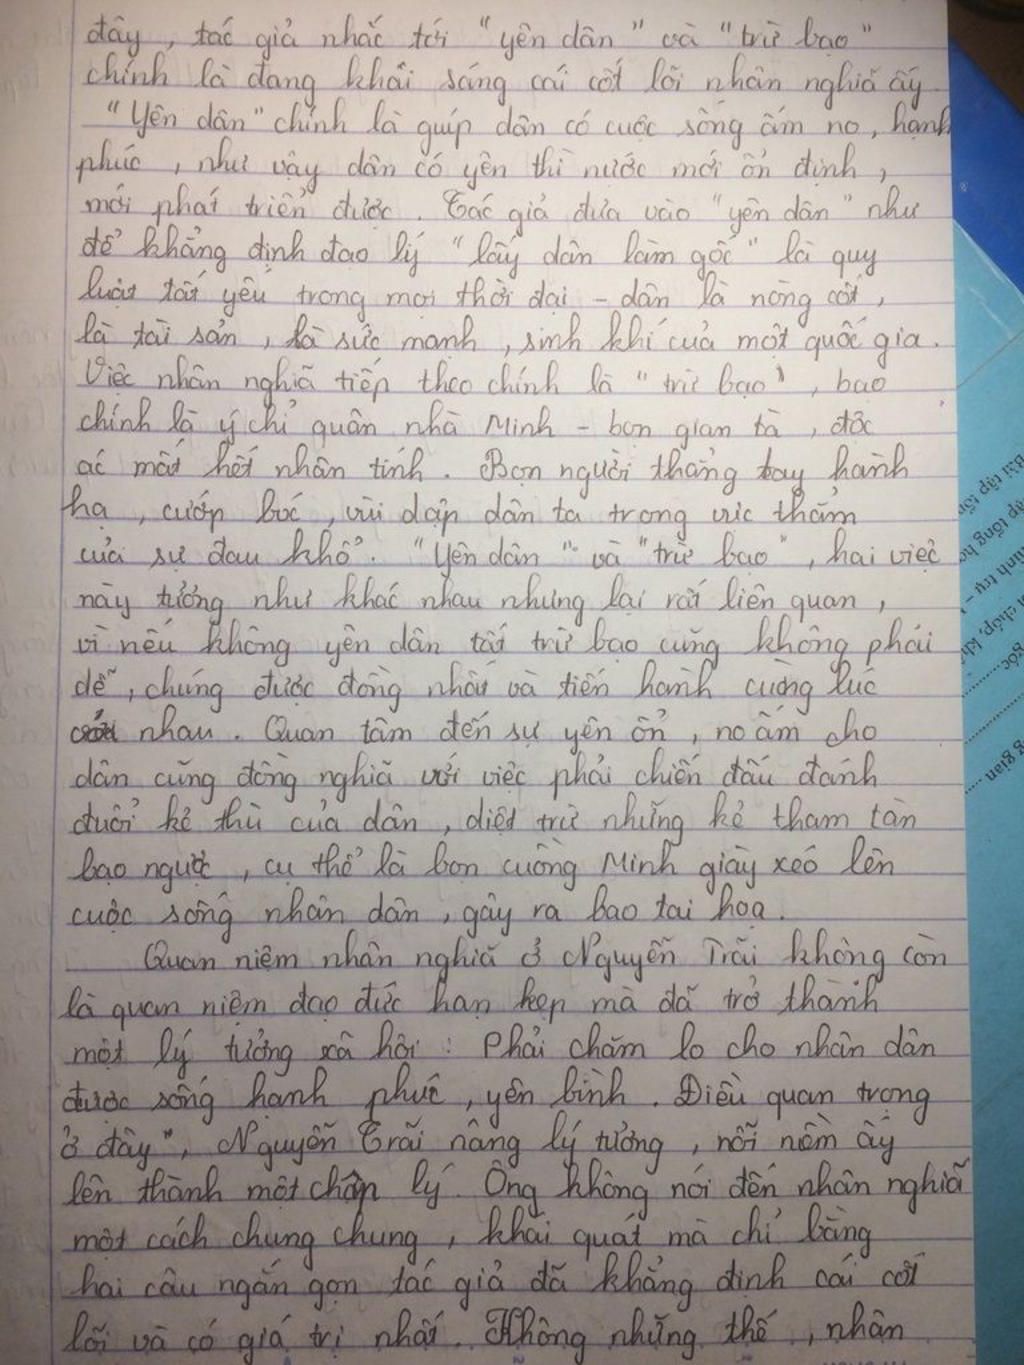 đây, tác giả nhắc tới "yên dân" và "trừ bạo"
chính là đang khải sáng cái cốt lõi nhân nghĩa ấy
"Yên dân" chính là guíp dân có cuộc sống ấm no, hạnh
phúc, như vậy dân có yên thì nước mới ổn định,
mới phát triển được. Tác giả đưa vào "yên dân" như
để khẳng định đạo lý "lấy dân làm gốc" là quy
luật tất yếu trong mọi thời đại - dân là nòng cốt,
là tài sản, là sức mạnh, sinh khí của một quốc gia.
Việc nhân nghĩa tiếp theo chính là "trừ bạo", bạo
chính là ý chỉ quân nhà Minh - bọn gian tà, độc
ác mất hết nhân tính. Bọn người thẳng tay hành
hạ, cướp bóc, vùi dập dân ta trong vực thẳm
của sự đau khổ. "Yên dân" và "trừ bạo", hai việc
này tưởng như khác nhau nhưng lại rất liên quan,
vì nếu không yên dân tất trừ bạo cũng không phải
dễ, chúng được đồng nhất và tiến hành cùng lúc
nhau. Quan tâm đến sự yên ổn, no ấm cho
dân cũng đồng nghĩa với việc phải chiến đấu đánh
đuổi kẻ thù của dân, diệt trừ những kẻ tham tàn
bạo ngược, cụ thể là bọn cuồng Minh giày xéo lên
cuộc sống nhân dân, gây ra bao tai hoạ.
Quan niệm nhân nghĩa ở Nguyễn Trãi không còn
là quan niệm đạo đức hạn hẹp mà đã trở thành
một lý tưởng xã hội: Phải chăm lo cho nhân dân
được sống hạnh phúc, yên bình. Điều quan trọng
ở đây", Nguyễn Trãi nâng lý tưởng, nỗi nềm ấy
lên thành một chân lý. Ông không nói đến nhân nghĩa
một cách chung chung, khái quát mà chỉ bằng
hai câu ngắn gọn tác giả đã khẳng định cái cốt
lõi và có giá trị nhất. Không những thế, nhân
Bài tập tổng